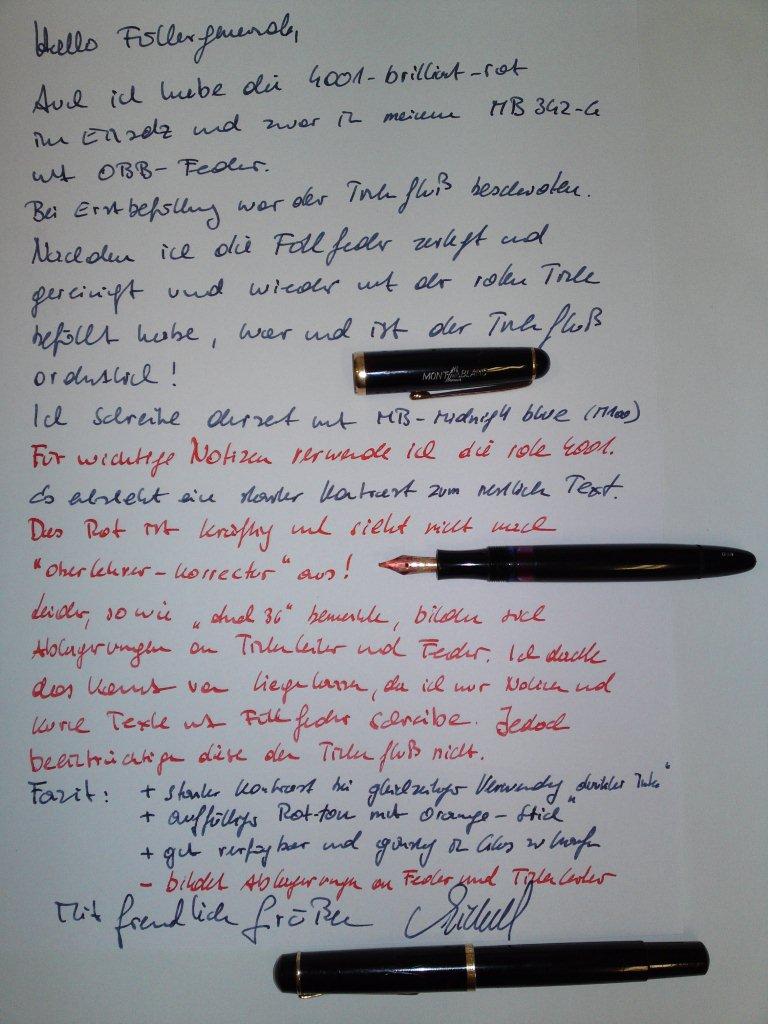 Hallo Füllergemeinde,
Auch ich habe die 4001-brillant-rot
im Einsatz und zwar in meinem MB 342-G
mit OBB-Feder.
Bei Erstbefüllung war der Tintenfluß bescheiden.
Nachdem ich die Füllfeder zerlegt und
gereinigt und wieder mit der roten Tinte
befüllt habe, war und ist der Tintenfluß
ordentlich!
MONT BLANC
Ich schreibe derzeit mit MB-Midnight blue (M100)
Für wichtige Notizen verwende ich die rote 4001.
Es entsteht ein starker Kontrast zum restlichen Text.
Das Rot ist kräftig und sieht nicht nach
"Oberlehrer-Korrektur" aus!
Leider, so wie 36" bemerkte, bilden sich
Ablagerungen an Tintenleiter und Feder. Ich denke
das kommt vom liegenlassen, da ich nur Notizen und
kurze Texte mit Füllfeder schreibe. Jedoch
beeinträchtigen diese den Tintenfluß nicht.
Fazit: + starker Kontrast bei gleichzeitiger Verwendung "dunkler Tinte"
+ auffälliger Rot-ton mit Orange-Stich
+ gut verfügbar und günstig im Glas zu kaufen
- bildet Ablagerungen an Feder und Tintenleiter
Mit freundlichen Grüßen